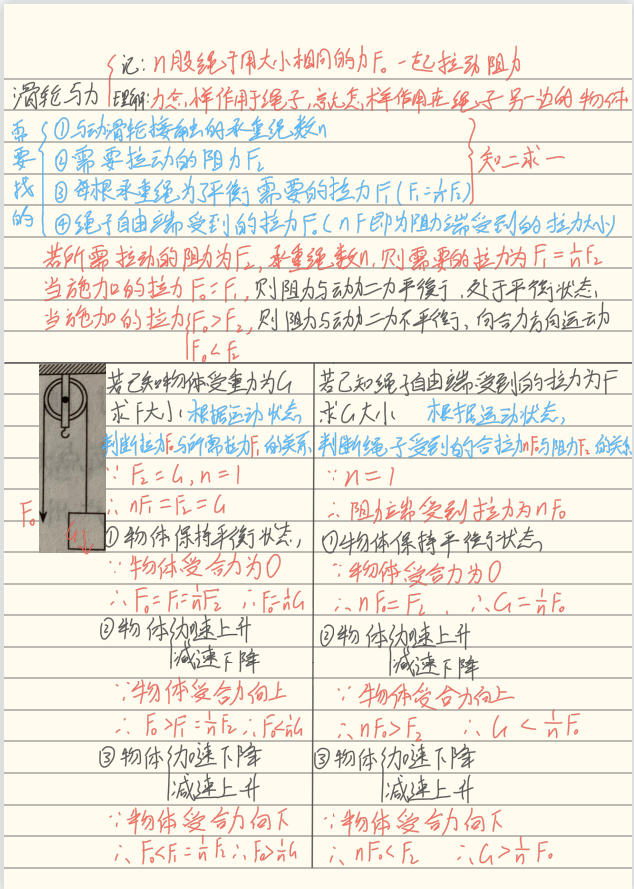 记: n股绳子用大小相同的力F₀一起拉动阻力
滑轮与力
理解: 力怎样作用于绳子,就怎样作用在绳子另一边的物体
需要找的
①与动滑轮接触的承重绳数n
②需要拉动的阻力F₂
③每根承重绳为了平衡需要的拉力F₁(F₁=1/n F₂)
④绳子自由端受到的拉力F₀(nF即为阻力端受到的拉力大小)
知二求一
若所需拉动的阻力为F₂,承重绳数n,则需要的拉力为F₁=1/n F₂
当施加的拉力F₀=F₁,则阻力与动力二力平衡,处于平衡状态,
当施加的拉力F₀>F₂,则阻力与动力二力不平衡,向合力方向运动
F₀<F₂
F₀
G
若已知物体受重力为G
求F大小: 根据运动状态,
判断拉力F₀与所需拉力F₁的关系
∵ F₂=G, n=1
∴ nF₁=F₂=G
①物体保持平衡状态,
∵物体受合力为0
∴F₀=F₁=1/n F₂ ∴F₀=1/n G
②物体加速上升
减速下降
∵物体受合力向上
∴ F₀>F₁=1/n F₂ ∴F₀<1/n G
③物体加速下降
减速上升
∵物体受合力向下
∴F₀<F₁=1/n F₂ ∴F₀>1/n G
若已知绳子自由端受到的拉力为F
求G大小 根据运动状态,
判断绳子受到的合拉力nF₀与阻力F₂的关系
∵n=1
∴阻力端受到拉力为nF₀
①物体保持平衡状态,
∵物体受合力为0
∴nF₀=F₂, ∴G=1/n F₀
②物体加速上升
减速下降
∵物体受合力向上
∴nF₀>F₂ ∴G<1/n F₀
③物体加速下降
减速上升
∵物体受合力向下
∴nF₀<F₂ ∴G>1/n F₀